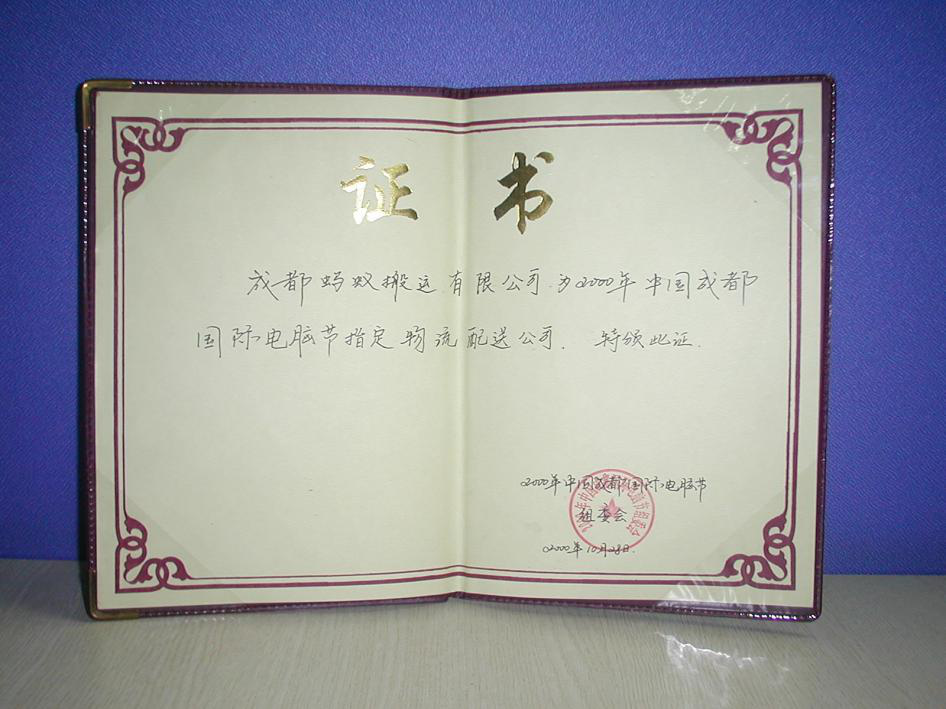 证书
成都蚂蚁搬运有限公司为2000年中国成都
国际电脑节指定物流配送公司. 特颁此证.
2000年中国成都国际电脑节
组委会
2000年10月28日.